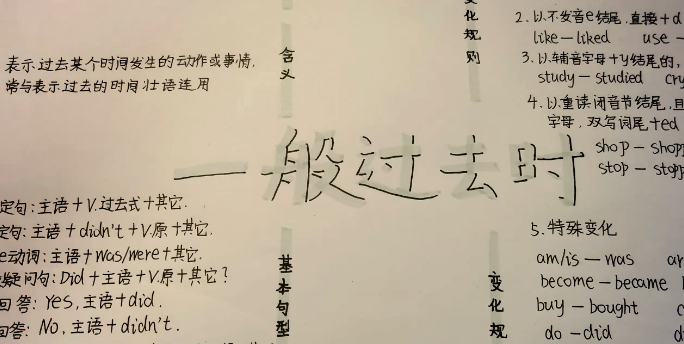 表示过去某个时间发生的动作或事情,
常与表示过去的时间壮语连用
含义
变化规则
2. 以不发音e结尾,直接+d
like—liked use—
3. 以辅音字母+y结尾的,
study—studied cry
4. 以重读闭音节结尾,且
字母,双写词尾+ed
shop—shopp
stop—stopp
一般过去时
定句:主语+V.过去式+其它.
定句:主语+didn't+V原+其它.
e动词:主语+was/were+其它.
疑问句:Did+主语+V原+其它?
回答:Yes,主语+did.
回答:No,主语+didn't.
基本句型
变化规
5.特殊变化
am/is—was ar
become—became
buy—bought
do—did d